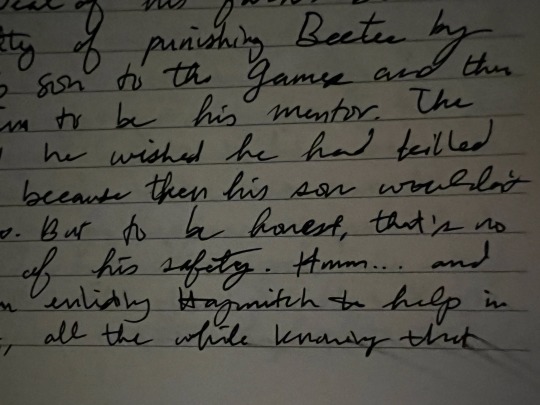 of his
of punishing Beetee by
son to the Games and then
to be his mentor. The
he wished he had killed
because then his son wouldn't
But to be honest, that's no
of his safety. Hmm... and
enlisting Haymitch to help in
, all the while knowing that